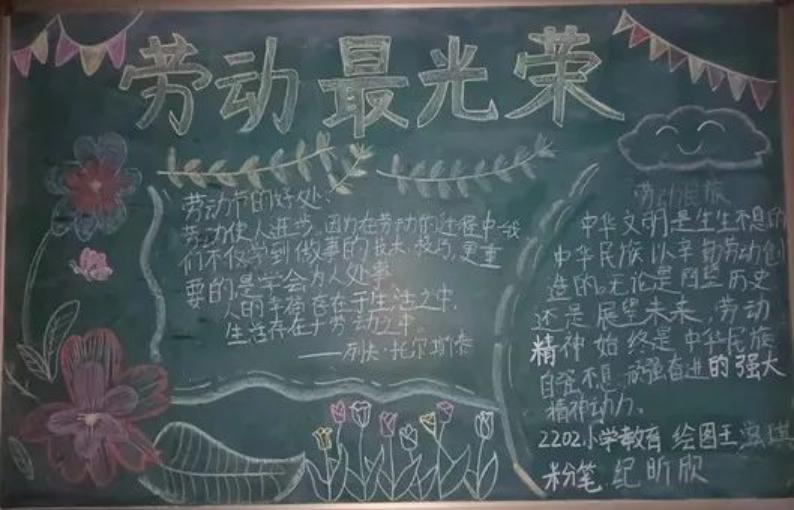 劳动最光荣
劳动节的好处:
劳动使人进步,因为在劳动的过程中我
们不仅学到做事的技术,技巧,更重
要的是学会为人处事
人的幸福存在于生活之中,
生活存在于劳动之中。
——列夫·托尔斯泰
劳动民族
中华文明是生生不息的
中华民族以辛勤劳动创
造的。无论是回望历史
还是展望未来,劳动
精神始终是中华民族
自强不息 顽强奋进的强大
精神动力。
2202小学教育 绘图王 琪
粉笔 纪昕欣